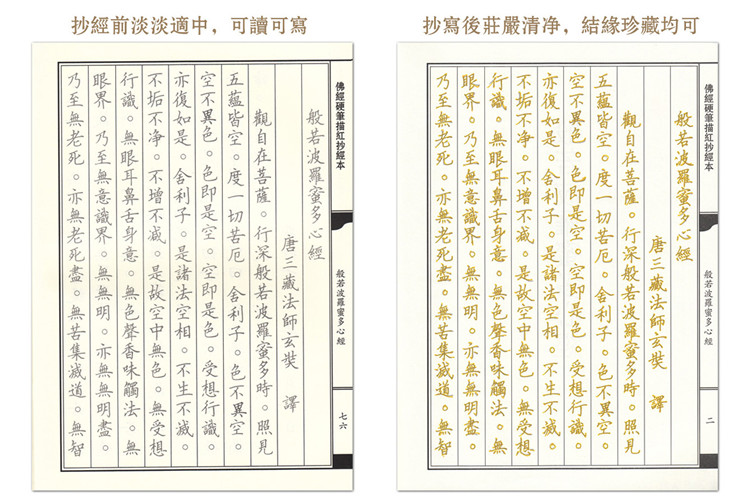 抄經前淡淡適中，可讀可寫
佛經硬筆描紅抄經本
般若波羅蜜多心經
七六
般若波羅蜜多心經
唐三藏法師玄奘 譯
觀自在菩薩。行深般若波羅蜜多時。照見
五蘊皆空。度一切苦厄。舍利子。色不異空。
空不異色。色即是空。空即是色。受想行識。
亦復如是。舍利子。是諸法空相。不生不滅。
不垢不净。不增不減。是故空中無色。無受想
行識。無眼耳鼻舌身意。無色聲香味觸法。無
眼界。乃至無意識界。無無明。亦無無明盡。
乃至無老死。亦無老死盡。無苦集滅道。無智
抄寫後莊嚴清净，結緣珍藏均可
佛經硬筆描紅抄經本
般若波羅蜜多心經
二
般若波羅蜜多心經
唐三藏法師玄奘 譯
觀自在菩薩。行深般若波羅蜜多時。照見
五蘊皆空。度一切苦厄。舍利子。色不異空。
空不異色。色即是空。空即是色。受想行識。
亦復如是。舍利子。是諸法空相。不生不滅。
不垢不净。不增不減。是故空中無色。無受想
行識。無眼耳鼻舌身意。無色聲香味觸法。無
眼界。乃至無意識界。無無明。亦無無明盡。
乃至無老死。亦無老死盡。無苦集滅道。無智